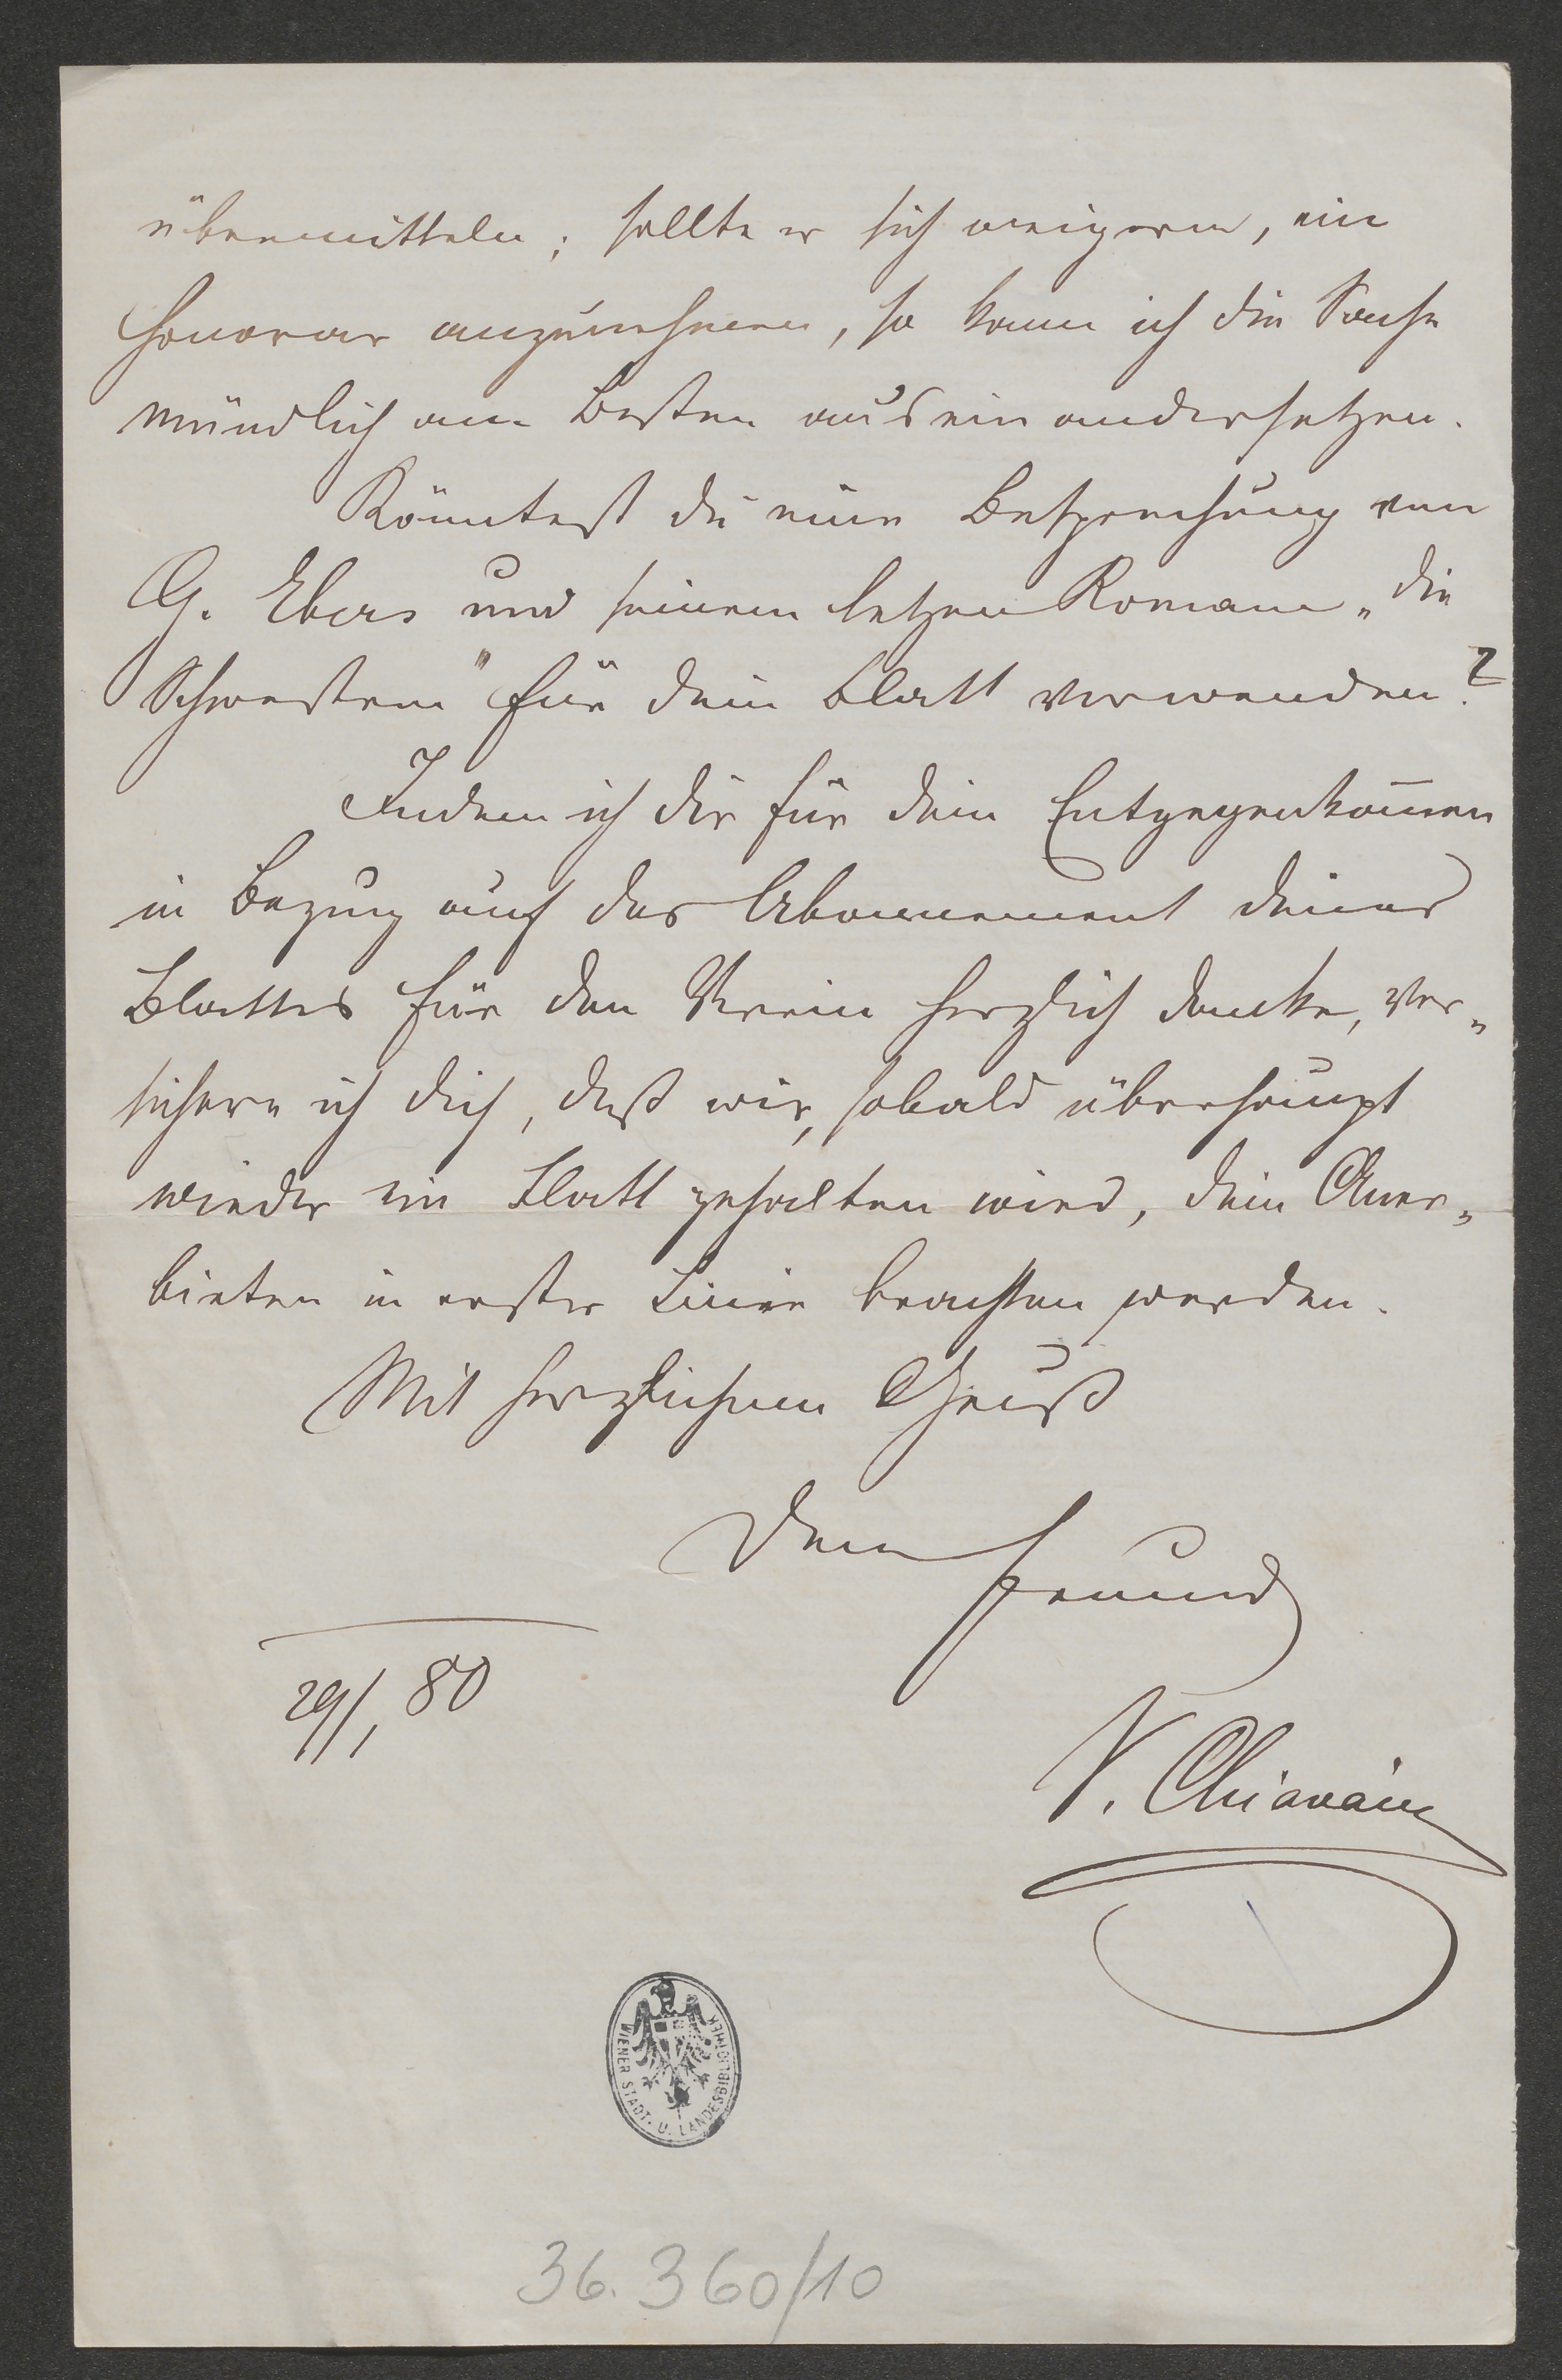 übermitteln; sollte er sich weigern, ein
Honorar anzunehmen, so kann ich die Sache
mündlich am Besten auseinandersetzen.
Könntest du eine Besprechung von
G. Ebers und seinem letzen Romane „die
Schwestern" für dein Blatt verwenden?
Indem ich dir für dein Entgegenkom̄en
in Bezug auf das Abonnement deines
Blattes für den Verein herzlich danke, ver„
sichere ich dich, daß wir, sobald überhaupt
wieder ein Blatt gehalten wird, dein Aner„
bieten in erster Linie beachten werden.
Mit herzlichem Gruß
Dein
Freund
V. Chiavacci
29/1 80
WIENER STADT- U. LANDESBIBLIOTHEK
36.360/10